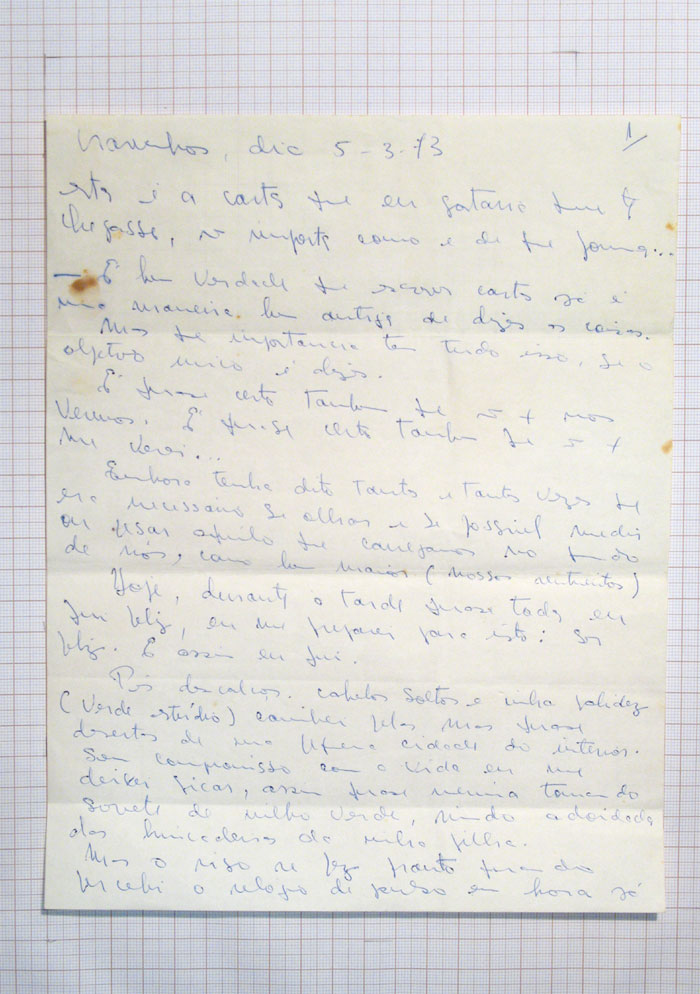 dia 5-3-73
1/
esta é a carta que eu gostaria que
chegasse, ñ importa como e de que forma...
— É bem verdade que escrever cartas já é
uma maneira bem antiga de dizer as coisas.
Mas que importancia tem tudo isso, se o
objetivo unico é dizer.
É quase certo tambem que ñ + nos
Vemos. É quase certo tambem que ñ +
me verei...
Embora tenha dito tantas e tantas vezes que
era necessário se olhar e se possível medir
ou usar aquilo que carregamos no fundo
de nós, como bem maior (nossos sentimentos)
Hoje, durante a tarde quase toda eu
fui feliz, eu me preparei para isto: ser
feliz. E assim eu fui.
Pés descalços. cabelos soltos e minha palidez
(verde estúdio) caminhei pelas ruas quase
desertas de uma pequena cidade do interior.
Sem compromisso com a vida eu me
deixei ficar, assim quase menina tomando
sorvete de milho verde, rindo adoidada
das brincadeiras da minha filha.
Mas o riso se fez pranto quando
percebi o relogio de pulso em hora já